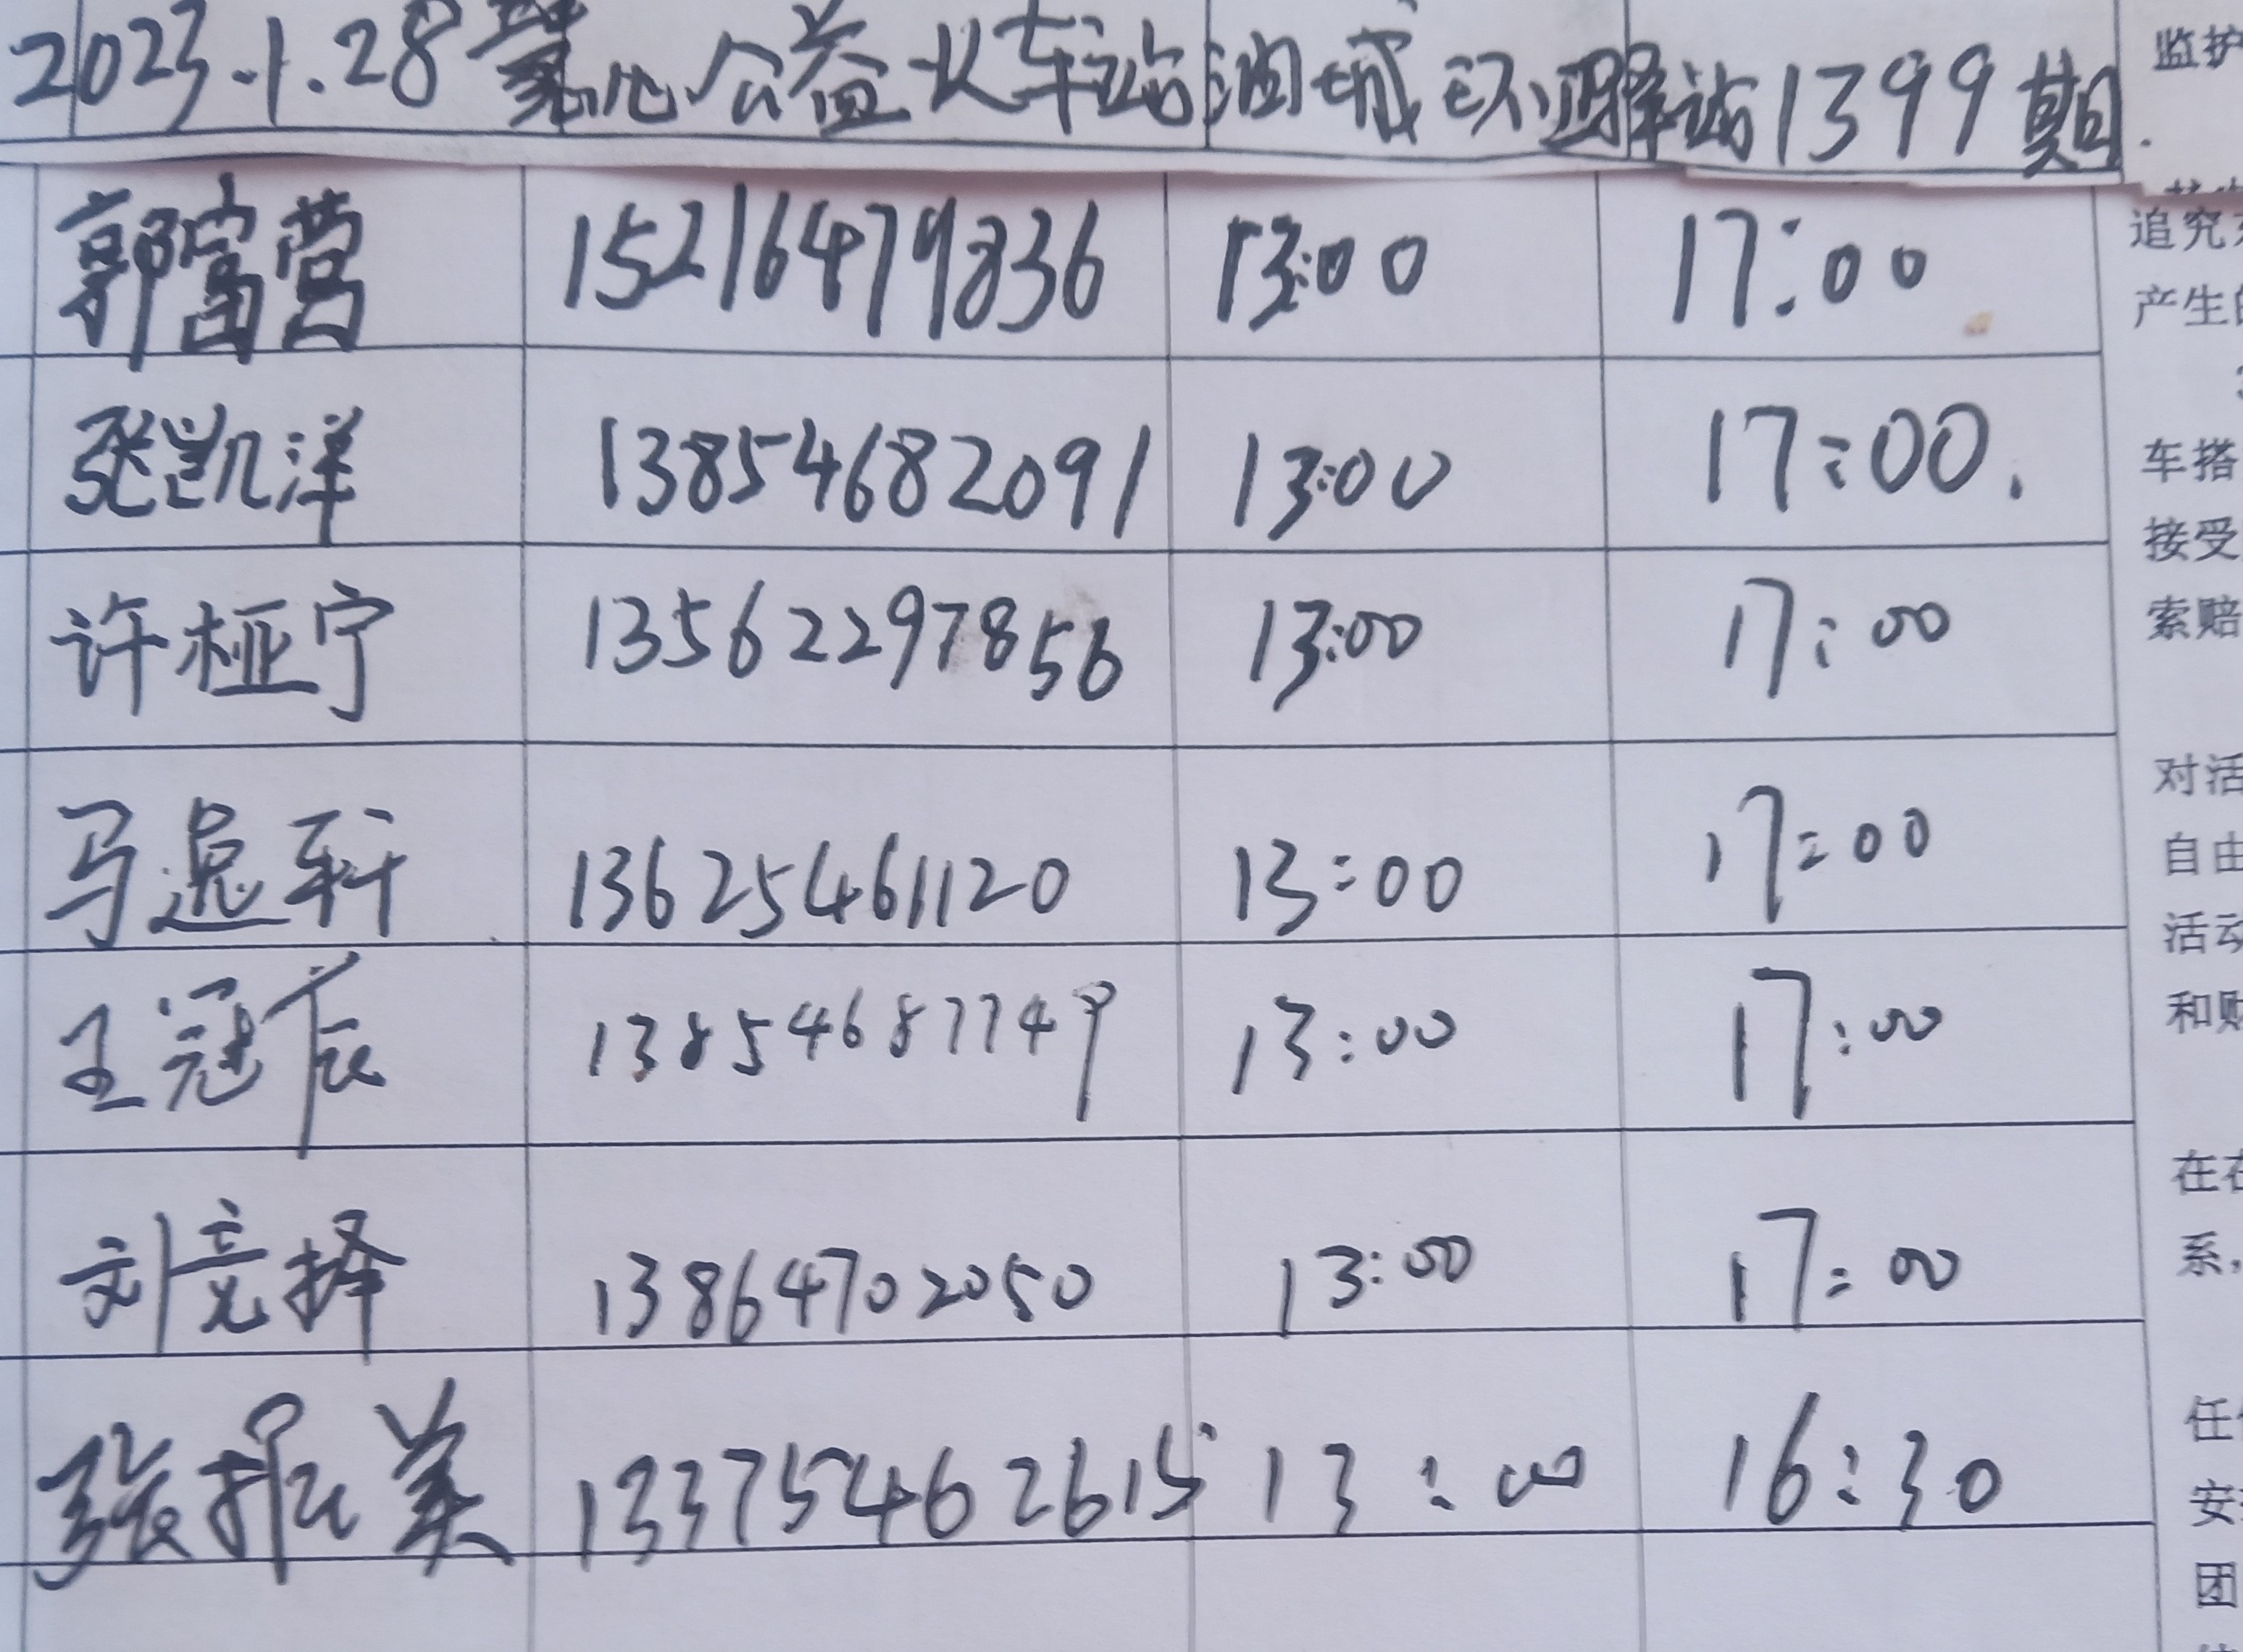 2023.1.28 公益火车站油城环驿站1399期
郭富营 15216479836 13:00 17:00
张凯洋 13854682091 13:00 17:00.
许桠宁 13562297856 13:00 17:00
马逸轩 13625461120 13:00 17:00
王冠辰 13854687749 13:00 17:00
刘竞择 13864702050 13:00 17:00
张振美 13375462615 13:00 16:30
监护
追究
产生的
车搭
接受
索赔
对活
自由
活动
和财
在
系,
任
安
团